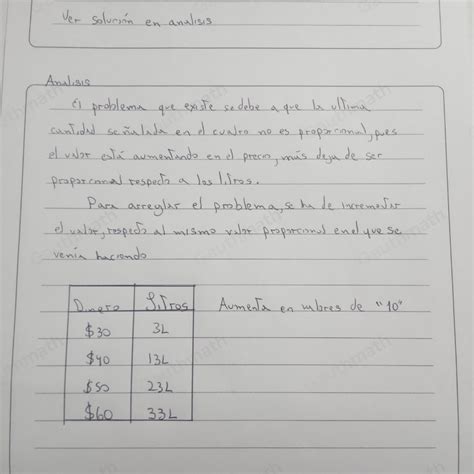 Ver solución en analisis
Analisis
El problema que existe se debe a que la ultima
cantidad señalada en el cuadro no es proporcional, pues
el valor está aumentando en el precio, más deja de ser
proporcional respecto a los litros.
Para arreglar el problema, se ha de incrementar
el valor, respecto al mismo valor proporcional en el que se
venía haciendo
Dinero Litros Aumenta en valores de "10"
$30 3L
$40 13L
$50 23L
$60 33L